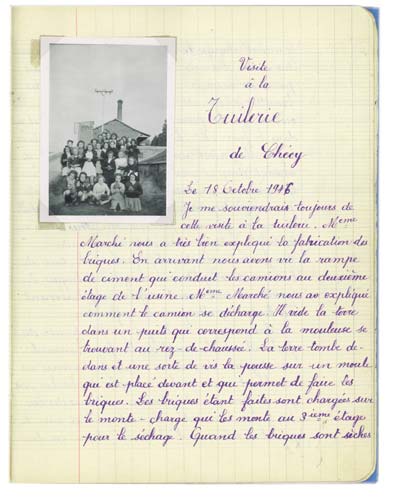 Visite
à la
Tuilerie
de Chécy
Le 18 Octobre 1946
Je me souviendrais toujours de
cette visite à la tuilerie. Meme
Marché nous a très bien expliqué la fabrication des
briques. En arrivant nous avons vu la rampe
de ciment qui conduit les camions au deuxième
étage de l'usine. Meme Marché nous a expliqué
comment le camion se décharge. Il vide la terre
dans un puits qui correspond à la mouleuse se
trouvant au rez-de-chaussée. La terre tombe de-
dans et une sorte de vis la pousse sur un moule
qui est placé devant et qui permet de faire les
briques. Les briques étant faites sont chargées sur
le monte-charge qui les monte au 3ième étage
pour le séchage. Quand les briques sont sèches